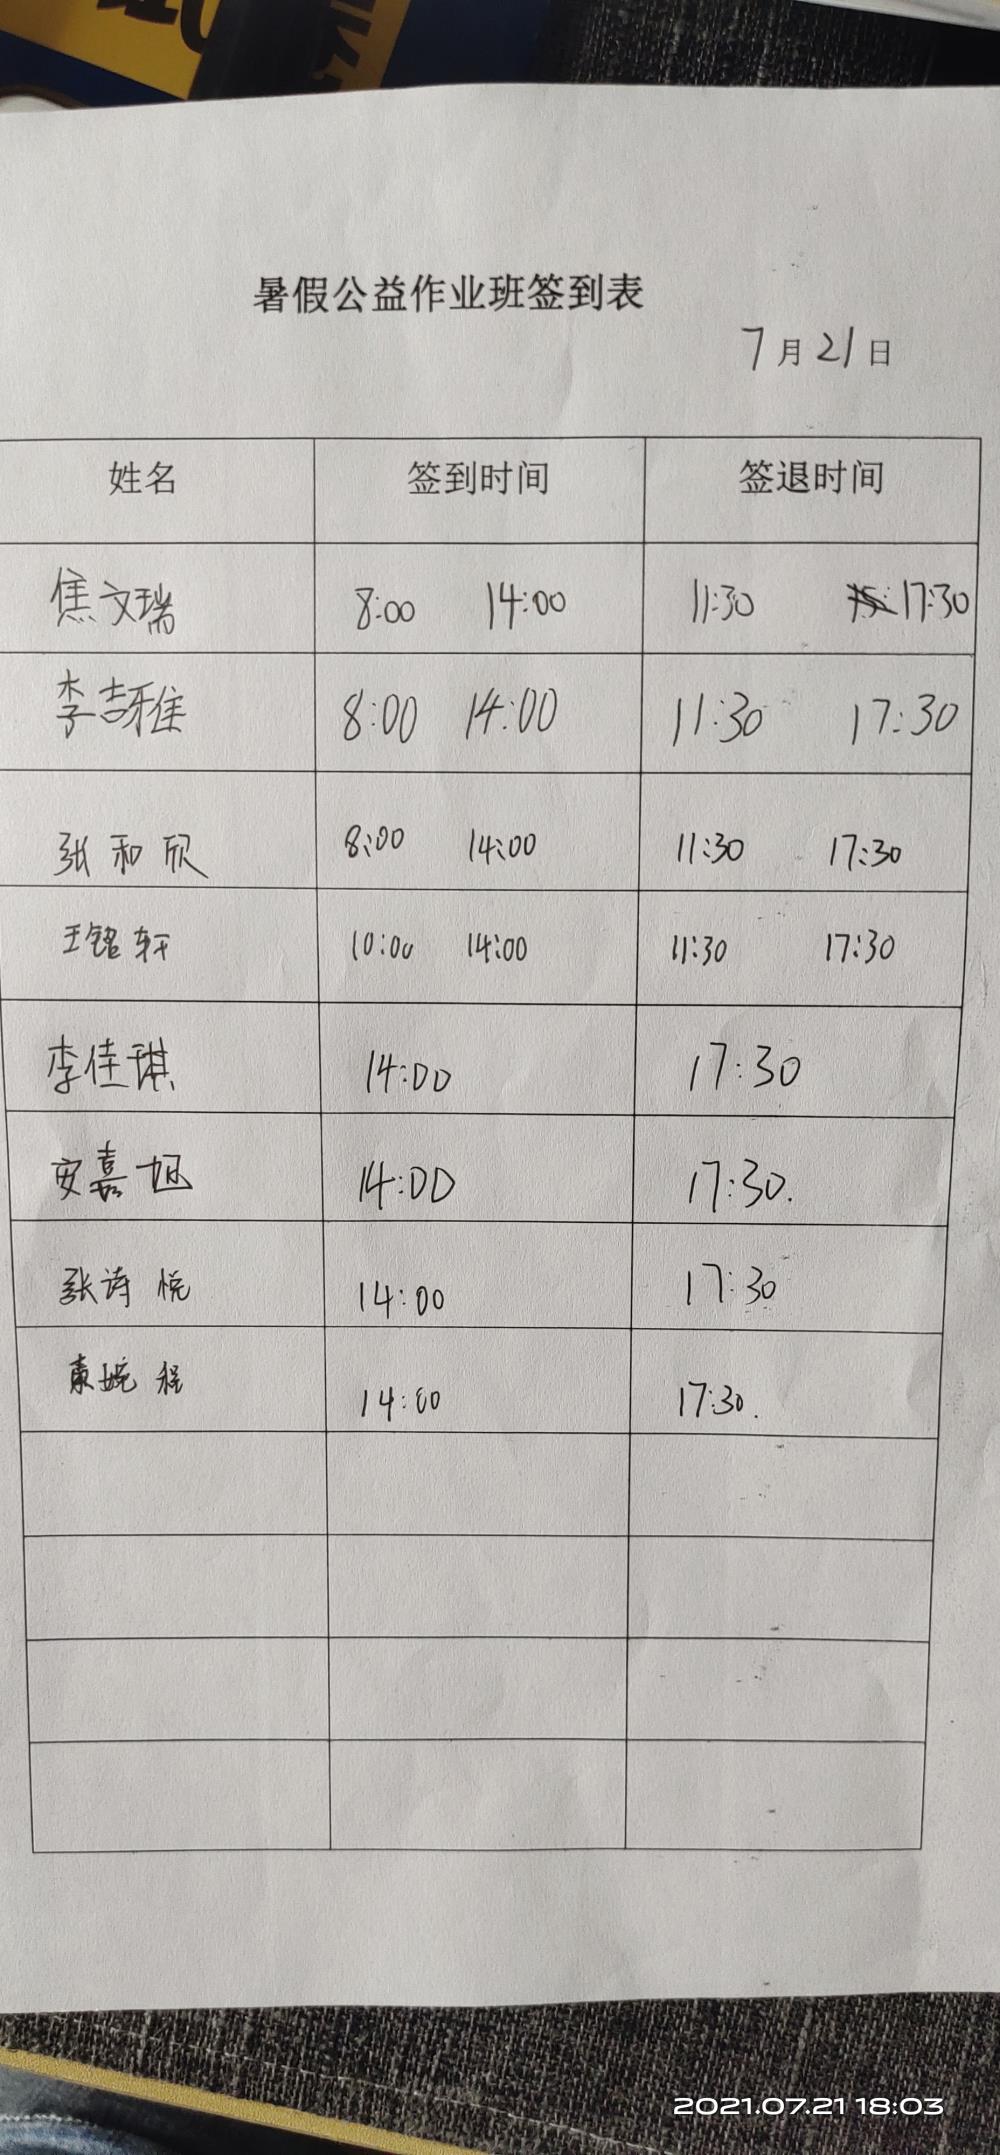 暑假公益作业班签到表
7月21日
姓名 签到时间 签退时间
焦文瑞 8:00 14:00 11:30 17:30
李喆雅 8:00 14:00 11:30 17:30
张和欣 8:00 14:00 11:30 17:30
王铭轩 10:00 14:00 11:30 17:30
李佳琪 14:00 17:30
安嘉旭 14:00 17:30.
张诗悦 14:00 17:30
14:00 17:30.
2021.07.21 18:03